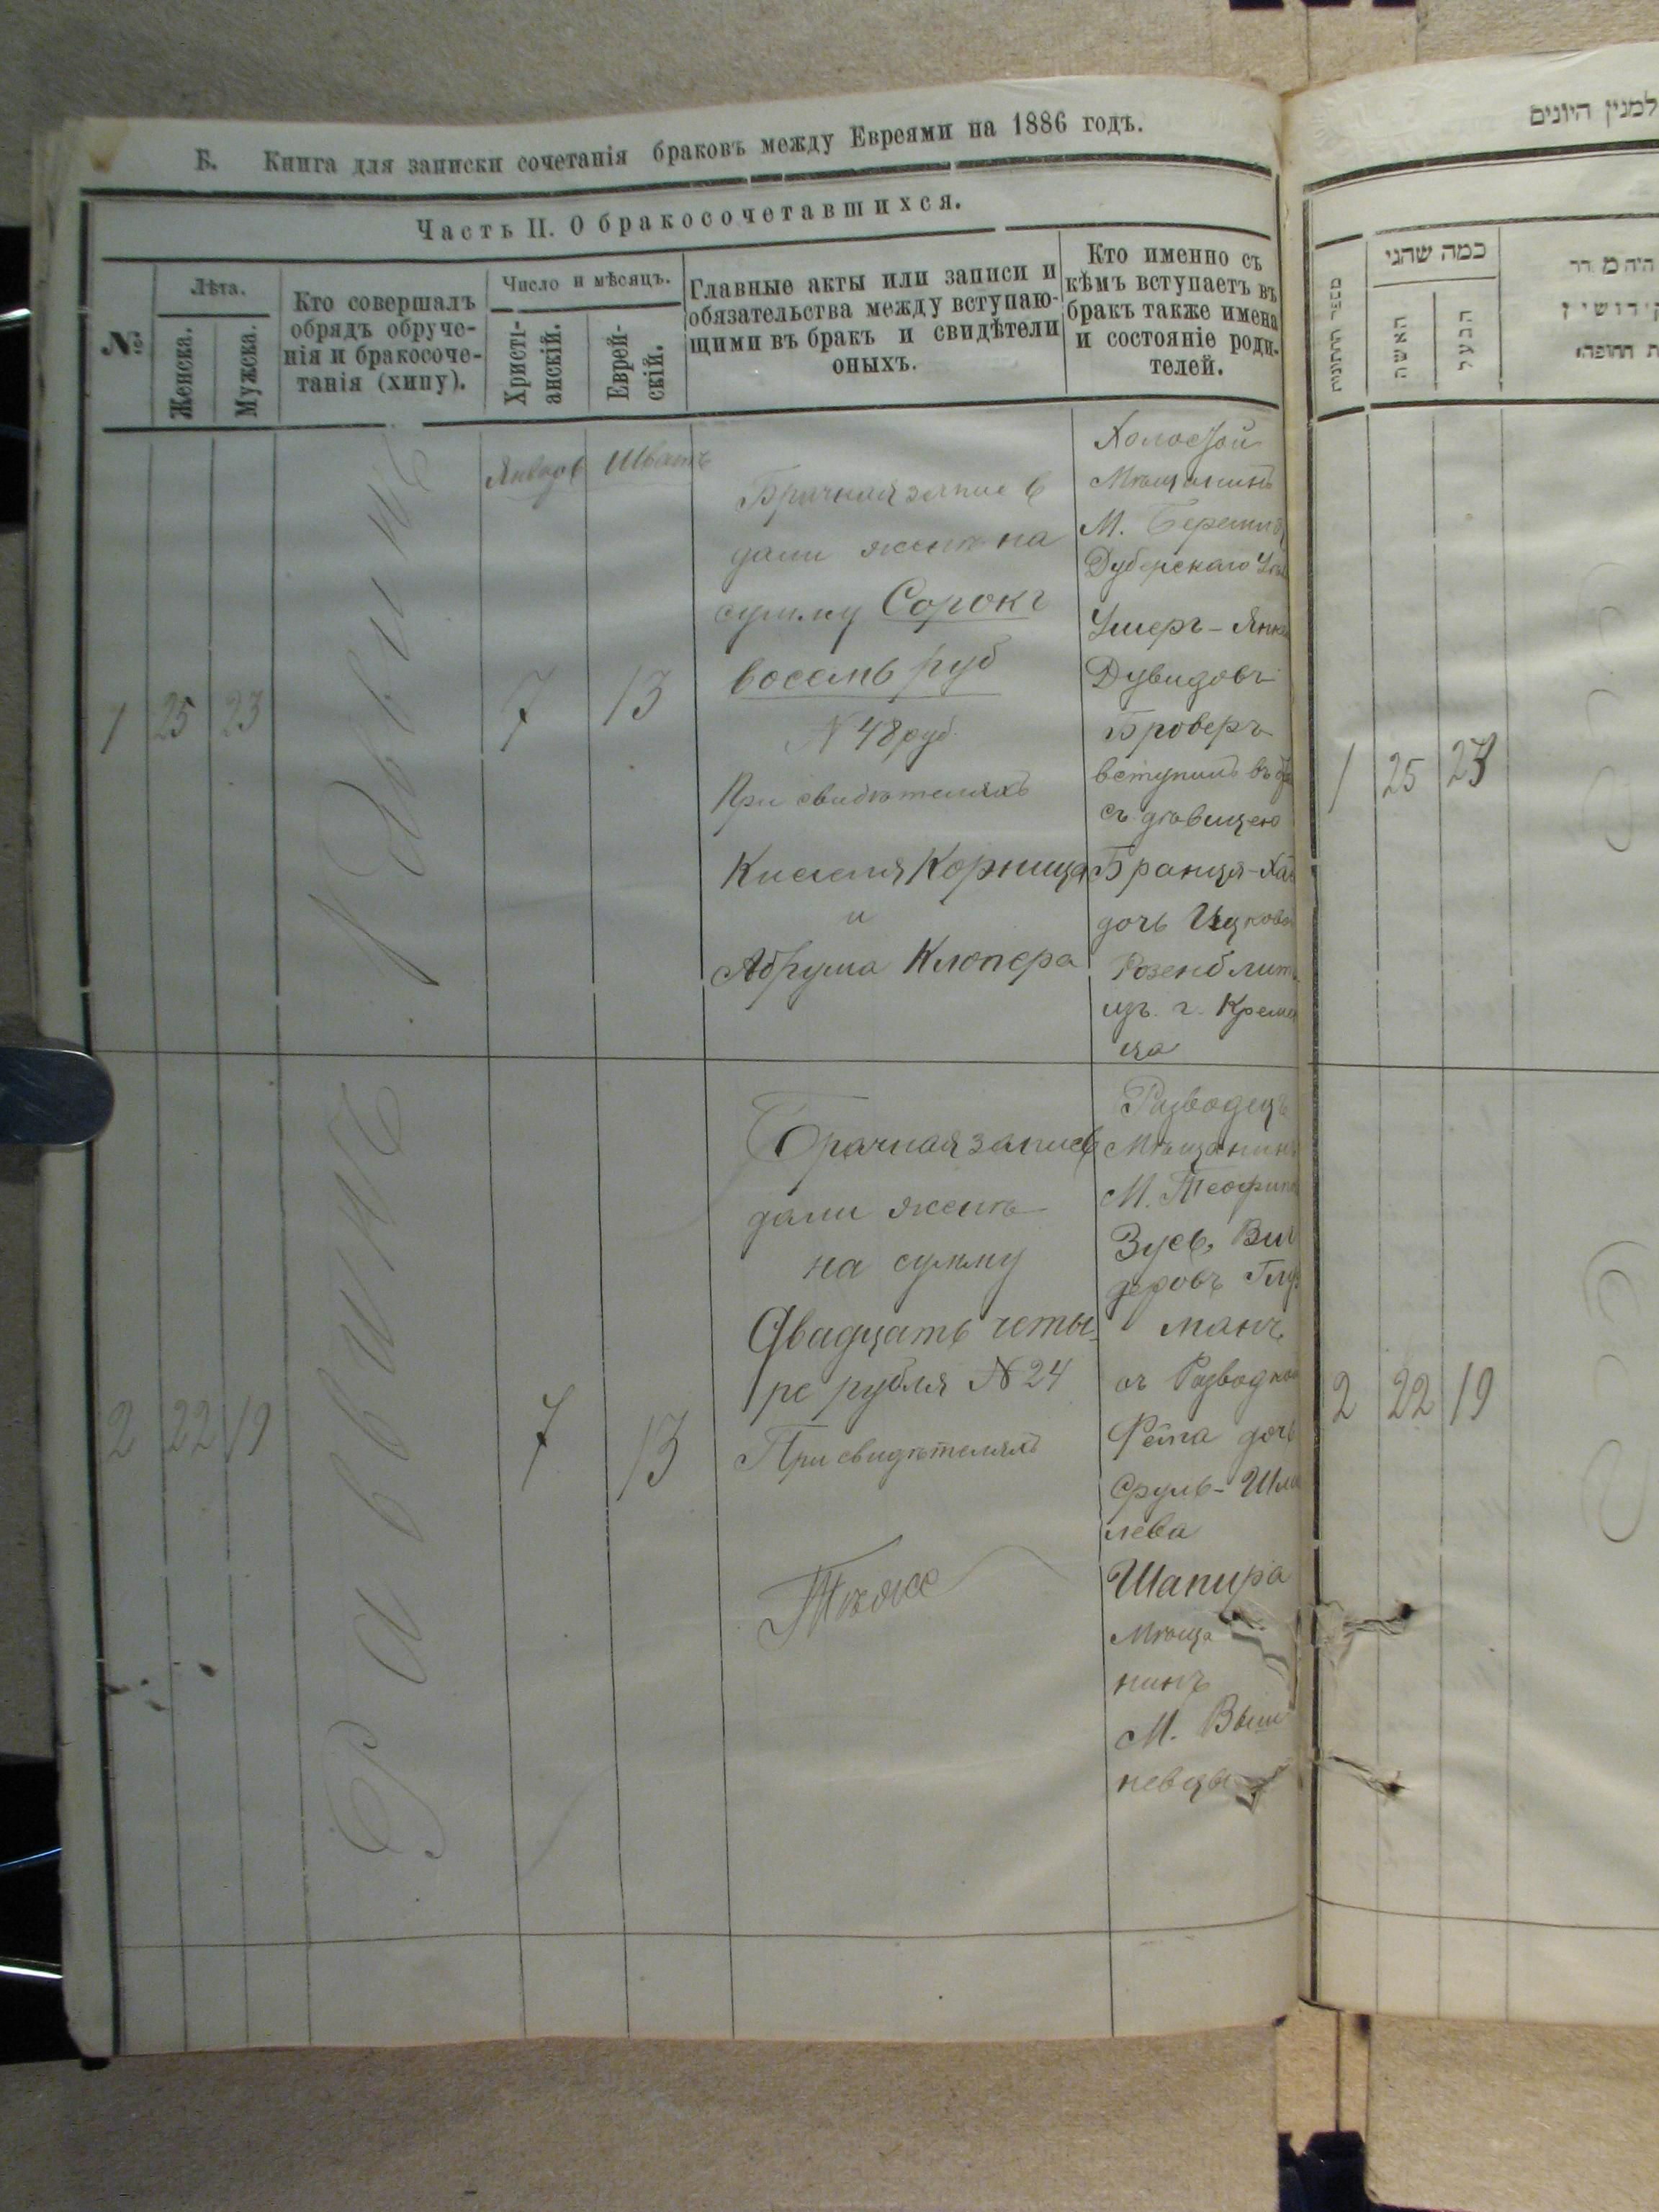 Б. Книга для записки сочетанія браковъ между Евреями на 1886 годъ.
Часть II. О бракосочетавшихся.
№
Лѣта.
Женска.
Мужска.
Кто совершалъ
обрядъ обруче-
нія и бракосоче-
танія (хипу).
Число и мѣсяцъ.
Христі-
анскій.
Еврей-
скій.
Главные акты или записи и
обязательства между вступаю-
щими въ бракъ и свидѣтели
оныхъ.
Кто именно съ
кѣмъ вступаетъ въ
бракъ также имена
и состояніе роди-
телей.
1
25
23
Раввинъ
Январь
7
Шватъ
13
Брачная запись
дали женѣ на
сумму Сорокъ
восемь руб
N 48 руб.
При свидѣтеляхъ
Киселя Корница
и
Абрума Клопера
Холостой
Мѣщанинъ
М.
Дубенскаго
Ушеръ-
Дувидовъ
Броверъ
вступилъ въ
съ дѣвицею
Бранця-
дочь Ицкова
Розенблит
изъ г. Креме
ца
2
22
19
Раввинъ
7
13
Брачная запись
дали женѣ
на сумму
Двадцать четы-
ре рубля N 24
При свидѣтеляхъ
Тѣхже
Разводецъ
Мѣщанинъ
М. Теофип
Зусь,
ман
съ Разводкою
Фейга дочь
Сруль-Шми
лева
Шапира
Мѣща
нинъ
М. Выш
невца
למנין היונים
מספר החתונות
כמה שהגי
האשה
הבעל
קידושין
ת החופה
1
25
23
2
22
19